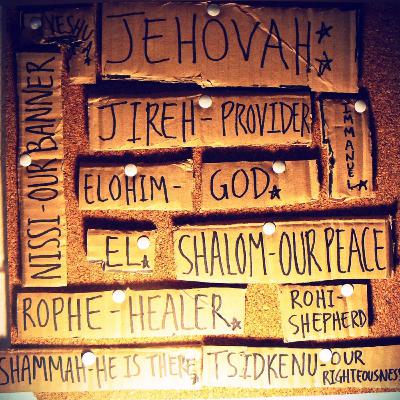 YESHUA
JEHOVAH
NISSI-OUR BANNER
JIREH-PROVIDER
IMMANUEL
ELOHIM-
GOD
EL
SHALOM-OUR PEACE
ROPHE-HEALER
ROHI-
SHEPHERD
SHAMMAH-HE IS THERE
TSIDKENU-OUR
RIGHTEOUSNESS